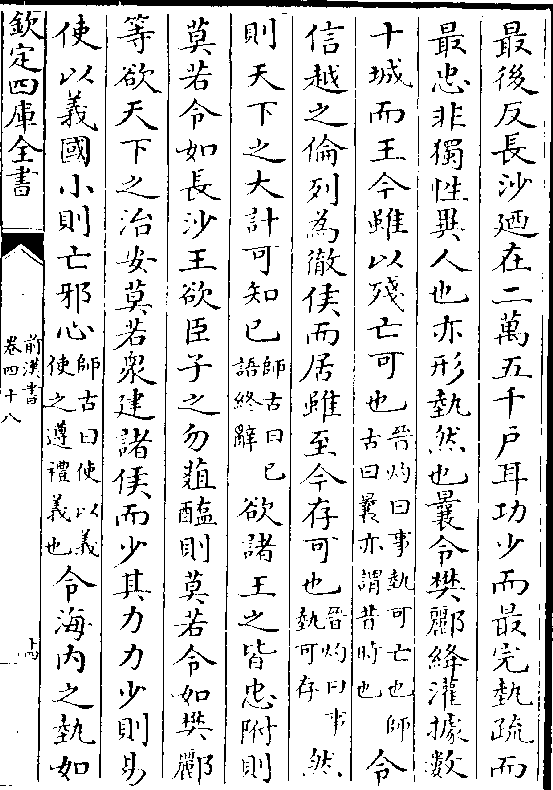 最後反長沙廼在二萬五千戶耳功少而最完埶疏而
最忠非獨性異人也亦形埶然也曩令樊酈絳灌據數
十城而王今雖以殘亡可也晉灼曰事埶可亡也師古曰曩亦謂昔時也令
信越之倫列為徹侯而居雖至今存可也晉灼曰事埶可存然
則天下之大計可知已師古曰已語終辭欲諸王之皆忠附則
莫若令如長沙王欲臣子之勿葅醢則莫若令如樊酈
等欲天下之治安莫若衆建諸侯而少其力力少則易
使以義國小則亡邪心師古曰使以義使之遵禮義也令海內之埶如
欽定四庫全書
前漢書
卷四十八
十四